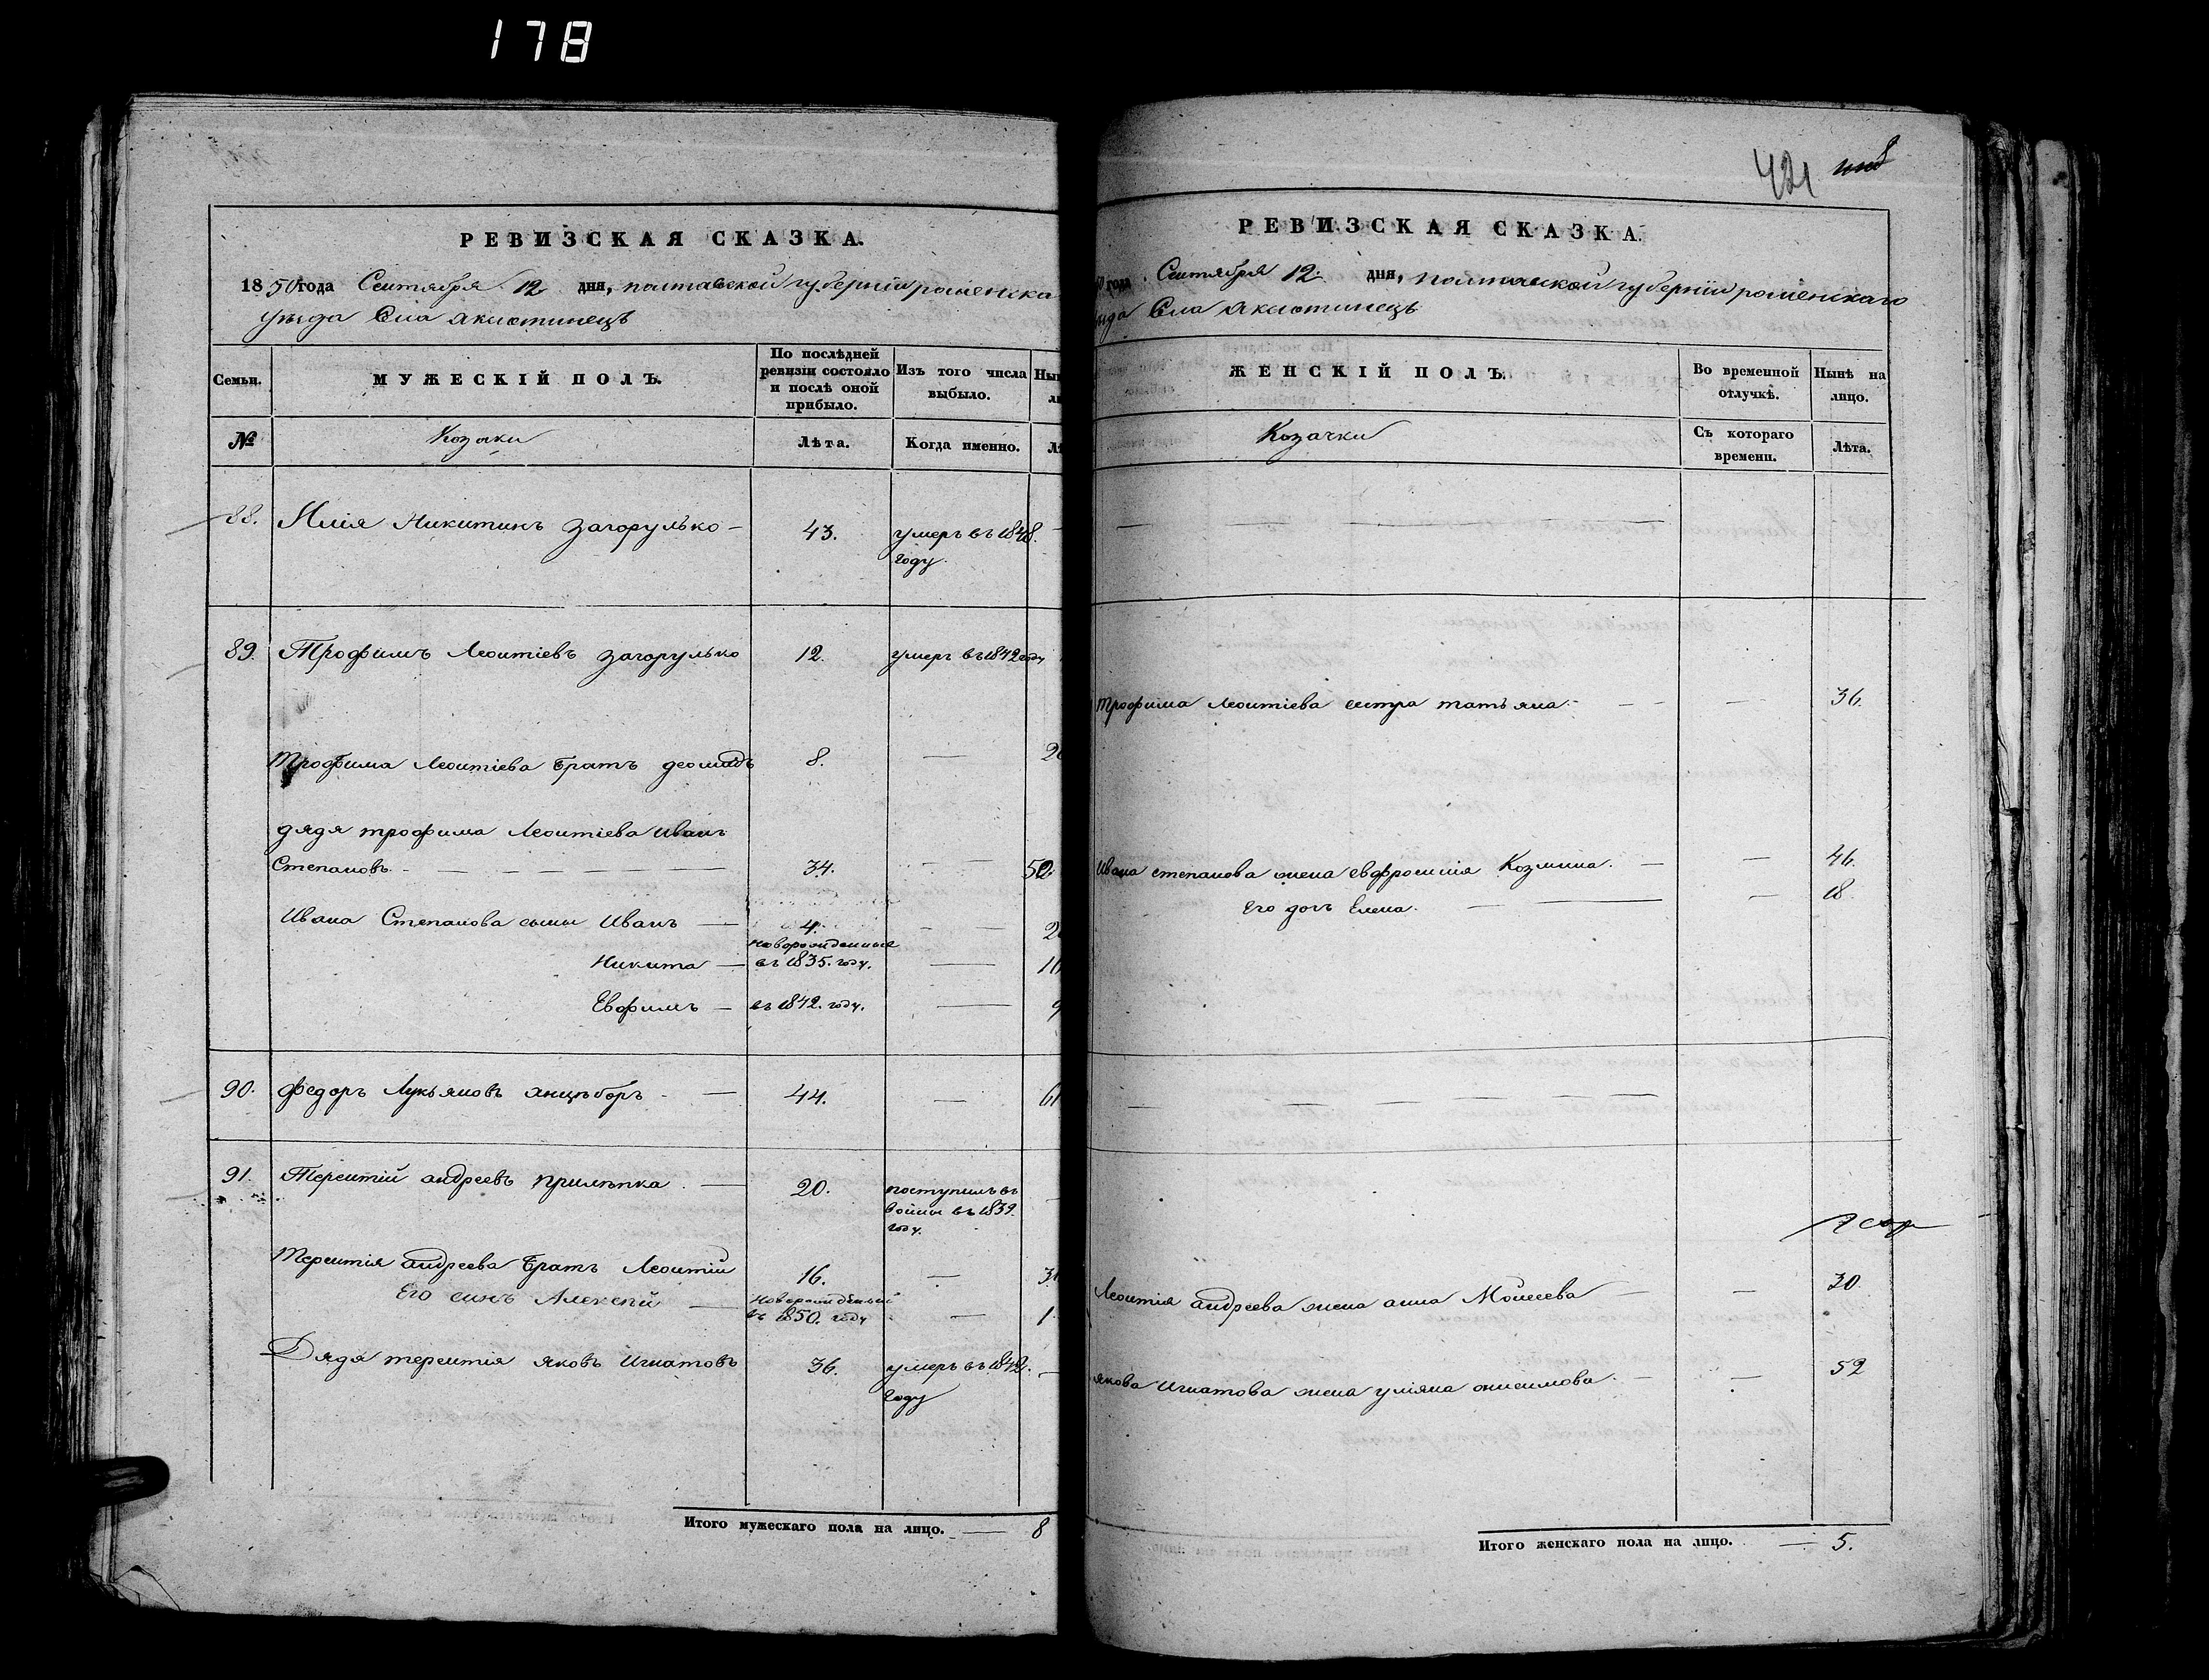 178
РЕВИЗСКАЯ СКАЗКА.
1850 года Сентября 12 дня, полтавской губернiи роменска
уѣзда Села Аксютинецъ
Семьи.
МУЖЕСКІЙ ПОЛЪ.
По послѣдней ревизіи состояло и послѣ оной прибыло.
Изъ того числа выбыло.
Ны
№
Козаки
Лѣта.
Когда именно.
Лѣ
88. Илiя Никитинъ Загорулько — 43. умеръ въ 1848. —
году.
89. Трофимъ Леонтiевъ загорулько 12. умеръ въ 1842 году
Трофима Леонтiева братъ деомидъ 8. — 2
дядя трофима Леонтiева Иванъ
Степановъ. — 34. — 50
Ивана Степанова сыны Иванъ — 4. — 2
новорожденные
Никита — въ 1835. году. — 1
Евфимъ — въ 1842. году. — 9
90. федоръ Лукьяновъ анцыборъ — 44. — 61
91. Терентiй андреевъ прилѣпка — 20. поступилъ въ —
войны въ 1839.
году.
Терентiя андреева братъ Леонтiй 16. — 3
Его сынъ Алексѣй — новорожденный
въ 1850. году — 1
Дядя терентiя яковъ игнатовъ 36. умеръ въ 1842. —
году
Итого мужескаго пола на лицо. — 8
421
РЕВИЗСКАЯ СКАЗКА.
0 года Сентября 12. дня, полтавской губернiи роменскаго
зда Села Аксютинецъ
ЖЕНСКІЙ ПОЛЪ.
Во временной отлучкѣ.
Нынѣ на лицо.
Козачки
Съ котораго времени.
Лѣта.
Трофима Леонтiева сестра татьяна — — 36.
Ивана степанова жена евфросинiя Козмина. — — 46.
Его дочь Елена. — — 18.
Леонтiя андреева жена анна Моисеева — — 30
якова игнатова жена улiяна онисимова. — — 52
Итого женскаго пола на лицо. — 5.